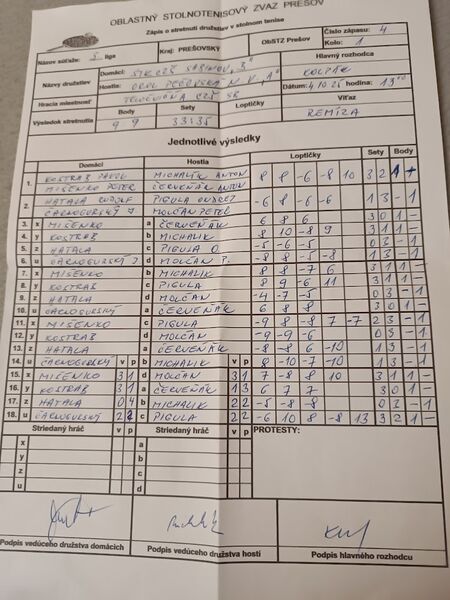 OBLASTNÝ STOLNOTENISOVÝ ZVÄZ PREŠOV
Zápis o stretnutí družstiev v stolnom tenise
Názov súťaže: 5. liga Kraj: PREŠOVSKÝ ObSTZ Prešov Číslo zápasu: 4 Kolo: 1
Názov družstiev Domáci: STK CZŠ SABINOV "B" Hlavný rozhodca
Hostia: OROL PEČOVSKÁ N. V. "A" KOLPÁK
Hracia miestnosť TELOCVIČŇA CZŠ SB Dátum: 4.10.25 hodina: 13
Výsledok stretnutia Body 9 9 Sety 33:35 Loptičky Víťaz REMÍZA
Jednotlivé výsledky
Domáci Hostia Loptičky Sety Body
1. KOSTRAB PAVOL MICHALÍK ANTON 8 8 -6 -8 10 3 2 1 -
MISENKO PETER ČERVEŇÁK ANTON
2. HATALA PIGULA ONDREJ -6 8 -6 -6 1 3 - 1
ČARNOGURSKÝ J MOLČAN PETER
3. x MISENKO a ČERVEŇÁK 6 8 6 3 0 1 -
4. y KOSTRAB b MICHALÍK 8 10 -8 9 3 1 1 -
5. z HATALA c PIGULA O. -5 -6 -5 0 3 - 1
6. u ČARNOGURSKÝ J d MOLČAN P. -8 8 -5 -8 1 3 - 1
7. x MISENKO b MICHALÍK 8 8 -7 6 3 1 1 -
8. y KOSTRAB c PIGULA 8 9 -6 11 3 1 1 -
9. z HATALA d MOLČAN -4 -7 -5 0 3 - 1
10. u ČARNOGURSKÝ a ČERVEŇÁK 6 8 8 3 0 1 -
11. x MISENKO c PIGULA -9 8 -8 7 -7 2 3 - 1
12. y KOSTRAB d MOLČAN -9 -9 8 -9 1 3 - 1
13. z HATALA a ČERVEŇÁK 8 -8 -6 -10 1 3 - 1
14. u ČARNOGURSKÝ v p b MICHALÍK v p 8 -10 -7 -10 1 3 - 1
15. x MISENKO 3 1 d MOLČAN 3 1 7 -8 8 10 3 1 1 -
16. y KOSTRAB 3 1 a ČERVEŇÁK 1 3 6 7 7 3 0 1 -
17. z HATALA 0 4 b MICHALÍK 2 2 -5 -8 -8 0 3 - 1
18. u ČARNOGURSKÝ 2 2 c PIGULA 2 2 -6 10 8 -8 13 3 2 1 -
Striedaný hráč v p Striedaný hráč v p PROTESTY:
x a
y b
z c
u d
Podpis vedúceho družstva domácich Podpis vedúceho družstva hostí Podpis hlavného rozhodcu